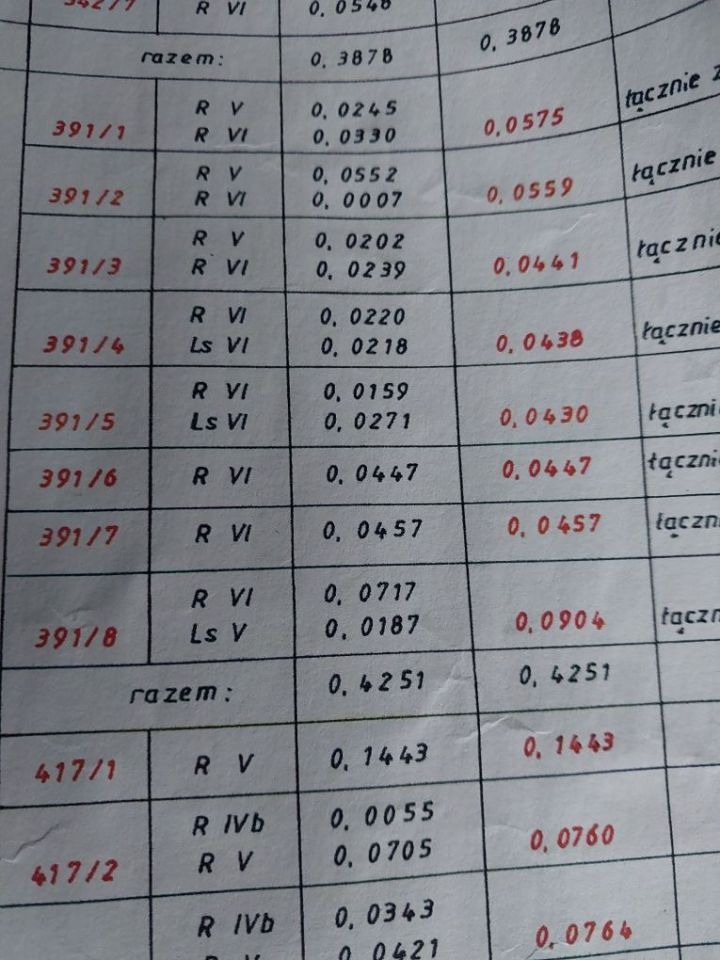 342/7 R VI 0,0548
razem: 0,3878 0,3878
R V 0,0245 łącznie z
391/1 R VI 0,0330 0,0575
R V 0,0552 łącznie
391/2 R VI 0,0007 0,0559
R V 0,0202 łącznie
391/3 R VI 0,0239 0,0441
R VI 0,0220 łącznie
391/4 Ls VI 0,0218 0,0438
R VI 0,0159
391/5 Ls VI 0,0271 0,0430 łączni
391/6 R VI 0,0447 0,0447 łączni
391/7 R VI 0,0457 0,0457 łączn
R VI 0,0717
391/8 Ls V 0,0187 0,0904 łączn
razem: 0,4251 0,4251
417/1 R V 0,1443 0,1443
R IVb 0,0055
417/2 R V 0,0705 0,0760
R IVb 0,0343 0,0764
R V 0,0421